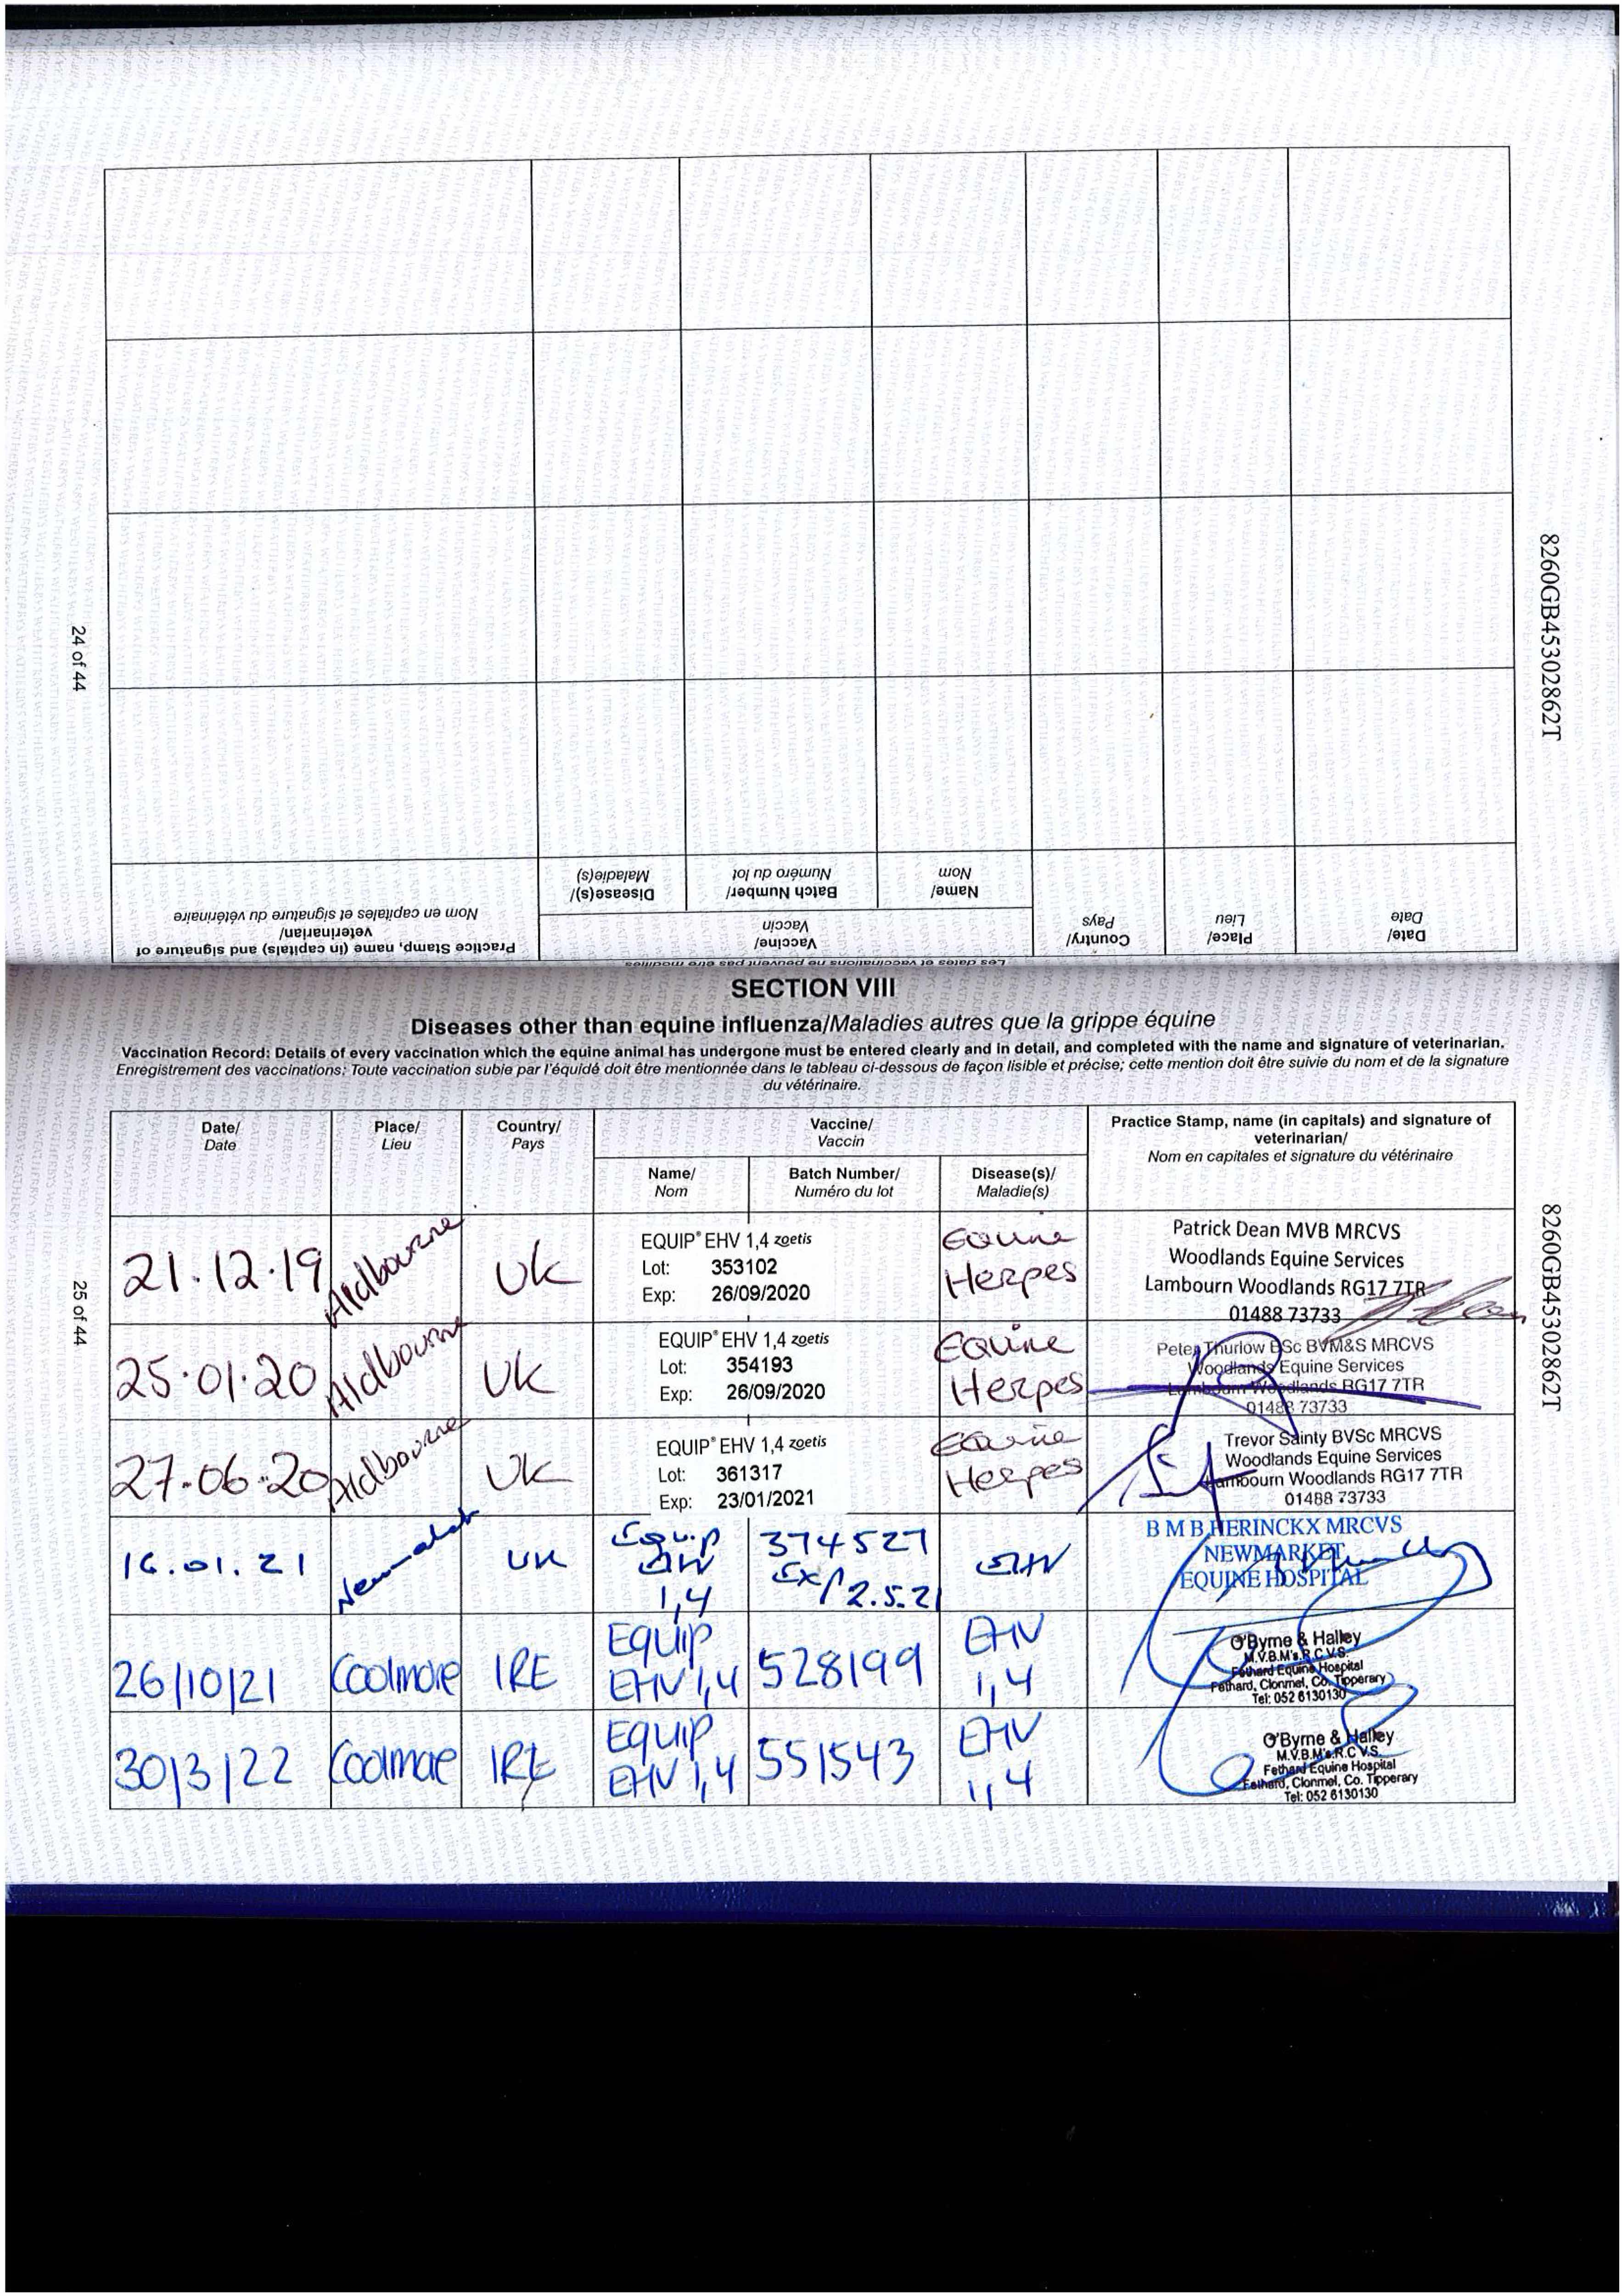 8260GB45302862T
24 of 44
Les dates et vaccinations ne peuvent pas être modifiées
Date/
Date
Place/
Lieu
Country/
Pays
Vaccine/
Vaccin
Name/
Nom
Batch Number/
Numéro du lot
Disease(s)/
Maladie(s)
Practice Stamp, name (in capitals) and signature of
veterinarian/
Nom en capitales et signature du vétérinaire
SECTION VIII
Diseases other than equine influenza/Maladies autres que la grippe équine
Vaccination Record: Details of every vaccination which the equine animal has undergone must be entered clearly and in detail, and completed with the name and signature of veterinarian.
Enregistrement des vaccinations: Toute vaccination subie par l'équidé doit être mentionnée dans le tableau ci-dessous de façon lisible et précise; cette mention doit être suivie du nom et de la signature
du vétérinaire.
Date/
Date
Place/
Lieu
Country/
Pays
Vaccine/
Vaccin
Name/
Nom
Batch Number/
Numéro du lot
Disease(s)/
Maladie(s)
Practice Stamp, name (in capitals) and signature of
veterinarian/
Nom en capitales et signature du vétérinaire
21.12.19
Aldbourne
UK
EQUIP® EHV 1,4 zoetis
Lot: 353102
Exp: 26/09/2020
Equine
Herpes
Patrick Dean MVB MRCVS
Woodlands Equine Services
Lambourn Woodlands RG17 7TR
01488 73733
25.01.20
Aldbourne
UK
EQUIP® EHV 1,4 zoetis
Lot: 354193
Exp: 26/09/2020
Equine
Herpes
Peter Thurlow BSc BVM&S MRCVS
Woodlands Equine Services
Lambourn Woodlands RG17 7TR
01488 73733
27.06.20
Aldbourne
UK
EQUIP® EHV 1,4 zoetis
Lot: 361317
Exp: 23/01/2021
Equine
Herpes
Trevor Sainty BVSc MRCVS
Woodlands Equine Services
Lambourn Woodlands RG17 7TR
01488 73733
16.01.21
Newmarket
UK
Equip
EHV
1,4
374527
Exp 2.5.21
EHV
B M B HERINCKX MRCVS
NEWMARKET
EQUINE HOSPITAL
26/10/21
Coolmore
IRE
Equip
EHV 1,4
528199
EHV
1,4
O'Byrne & Halley
M.V.B.M's.R.C.V.S.
Fethard Equine Hospital
Fethard, Clonmel, Co. Tipperary
Tel: 052 6130130
30/3/22
Coolmore
IRE
Equip
EHV 1,4
551543
EHV
1,4
O'Byrne & Halley
M.V.B.M's.R.C.V.S.
Fethard Equine Hospital
Fethard, Clonmel, Co. Tipperary
Tel: 052 6130130
25 of 44
8260GB45302862T